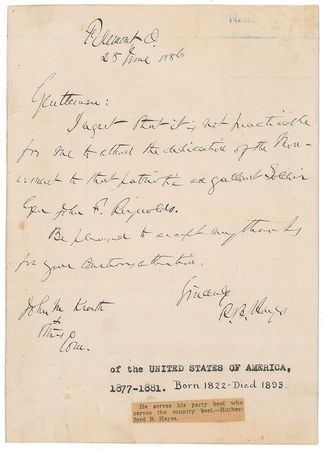 Fremont O.
25 June 1886
Gentlemen:
I regret that it is not practicable
for me to attend the dedication of the Mon-
ument to that patriotic and gallant Soldier
Gen John F. Reynolds.
Be pleased to accept my thanks
for your courteous attention.
Sincerely
R. B. Hayes
John M Krauth
&
Others
Com.
of the UNITED STATES OF AMERICA,
1877-1881. Born 1822-Died 1893
He serves his party best who
serves the country best.—Ruther-
ford B. Hayes.